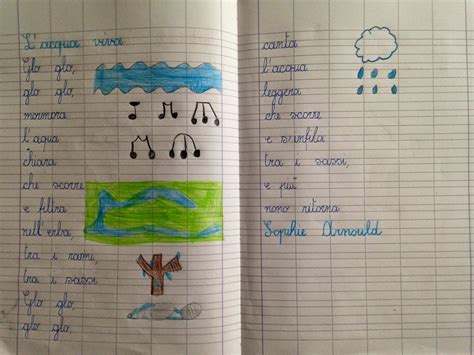 L'acqua viva
Glo glo,
glo glo,
mormora
l'aqua
chiara
che scorre
e filtra
nell'erba,
tra i rami,
tra i sassi
Glo glo,
glo glo,
canta
l'acqua
leggera
che scorre
e s'infila
tra i sassi,
e più
non ritorna
Sophie Arnould